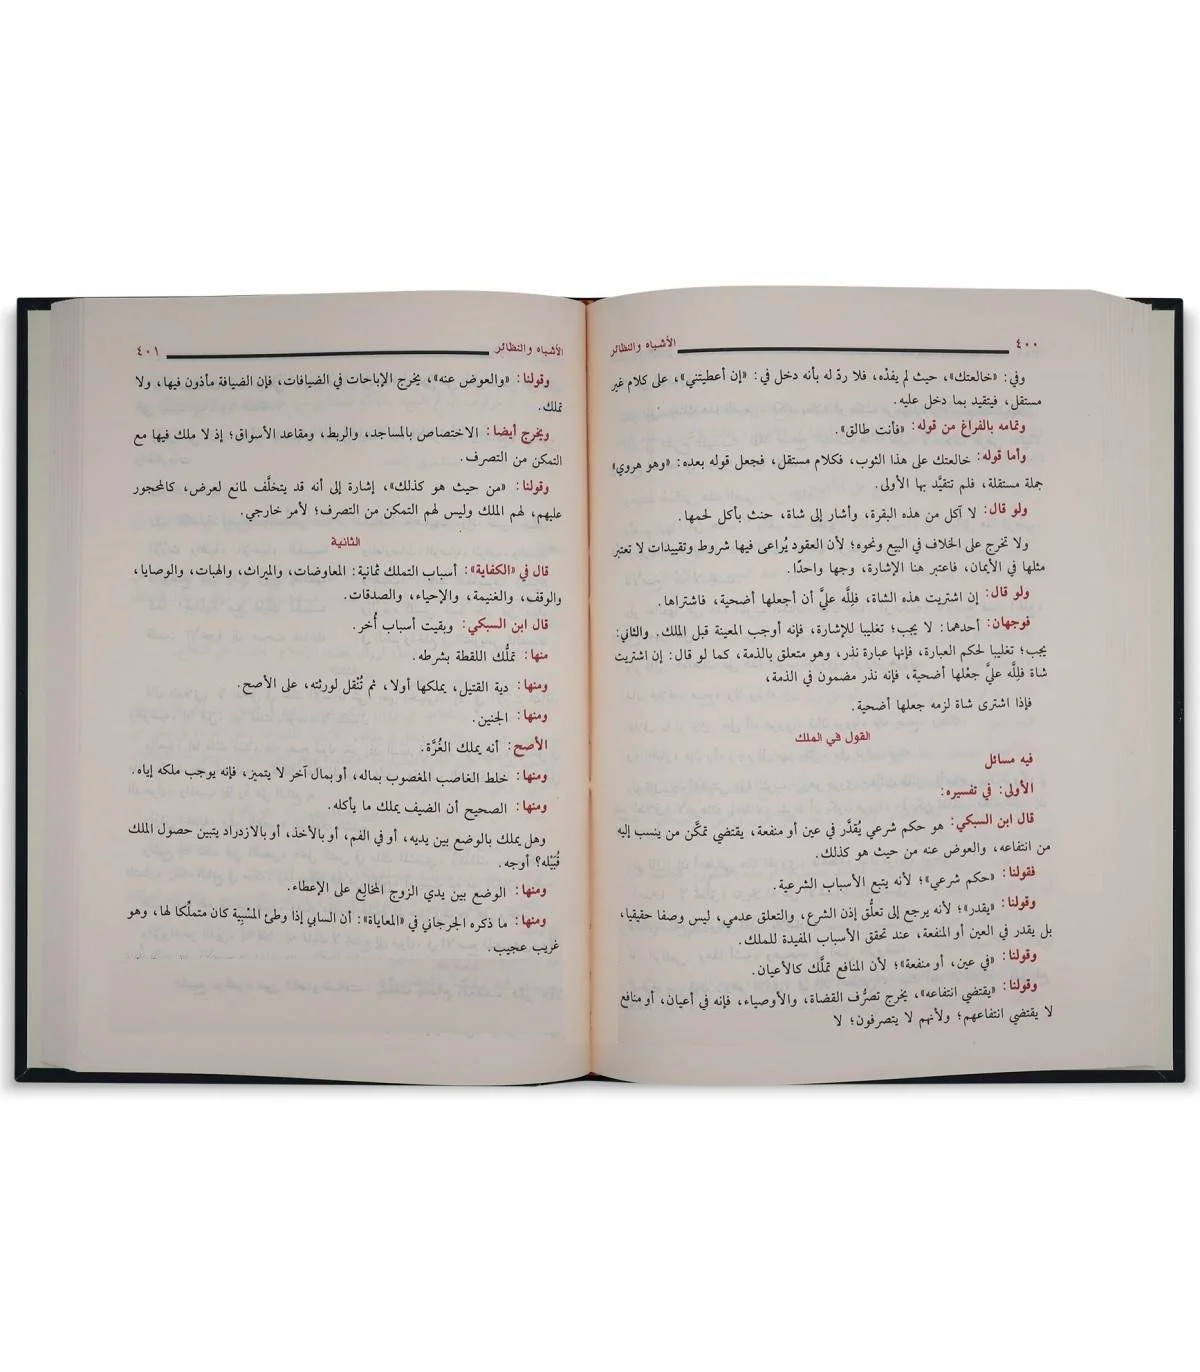 ٤٠٠ الأشباه والنظائر
وفي: «خالعتك»، حيث لم يفدْه، فلا ردّ له بأنه دخل في: «إن أعطيتني»، على كلام غير
مستقل، فيتقيد بما دخل عليه.
وتمامه بالفراغ من قوله: «فأنت طالق».
وأما قوله: خالعتك على هذا الثوب، فكلام مستقل، فجعل قوله بعده: «وهو هروي»
جملة مستقلة، فلم تتقيَّد بها الأولى.
ولو قال: لا آكل من هذه البقرة، وأشار إلى شاة، حنث بأكل لحمها.
ولا تخرج على الخلاف في البيع ونحوه؛ لأن العقود يُراعى فيها شروط وتقييدات لا تعتبر
مثلها في الأيمان، فاعتبر هنا الإشارة، وجها واحدًا.
ولو قال: إن اشتريت هذه الشاة، فلِلَّه عليَّ أن أجعلها أضحية، فاشتراها.
فوجهان: أحدهما: لا يجب؛ تغليبا للإشارة، فإنه أوجب المعينة قبل الملك. والثاني:
يجب؛ تغليبا لحكم العبارة، فإنها عبارة نذر، وهو متعلق بالذمة، كما لو قال: إن اشتريت
شاة فلِلَّه عليَّ جعْلها أضحية، فإنه نذر مضمون في الذمة،
فإذا اشترى شاة لزمه جعلها أضحية.
القول في الملك
فيه مسائل
الأولى: في تفسيره:
قال ابن السبكي: هو حكم شرعي يُقدَّر في عين أو منفعة، يقتضي تمكّن من ينسب إليه
من انتفاعه، والعوض عنه من حيث هو كذلك.
فقولنا: «حكم شرعي»؛ لأنه يتبع الأسباب الشرعية.
وقولنا: «يقدر»؛ لأنه يرجع إلى تعلُّق إذن الشرع، والتعلق عدمي، ليس وصفا حقيقيا،
بل يقدر في العين أو المنفعة، عند تحقق الأسباب المفيدة للملك.
وقولنا: «في عين، أو منفعة»؛ لأن المنافع تملَّك كالأعيان.
وقولنا: «يقتضي انتفاعه»، يخرج تصرُّف القضاة، والأوصياء، فإنه في أعيان، أو منافع
لا يقتضي انتفاعهم؛ ولأنهم لا يتصرفون؛ لا
الأشباه والنظائر ٤٠١
وقولنا: «والعوض عنه»، يخرج الإباحات في الضيافات، فإن الضيافة مأذون فيها، ولا
تملك.
ويخرج أيضا: الاختصاص بالمساجد، والربط، ومقاعد الأسواق؛ إذ لا ملك فيها مع
التمكن من التصرف.
وقولنا: «من حيث هو كذلك»، إشارة إلى أنه قد يتخلَّف لمانع لعرض، كالمحجور
عليهم، لهم الملك وليس لهم التمكن من التصرف؛ لأمر خارجي.
الثانية
قال في «الكفاية»: أسباب التملك ثمانية: المعاوضات، والميراث، والهبات، والوصايا،
والوقف، والغنيمة، والإحياء، والصدقات.
قال ابن السبكي: وبقيت أسباب أُخر.
منها: تملُّك اللقطة بشرطه.
ومنها: دية القتيل، يملكها أولا، ثم تُنْقل لورثته، على الأصح.
ومنها: الجنين.
الأصح: أنه يملك الغُرَّة.
ومنها: خلط الغاصب المغصوب بماله، أو بمال آخر لا يتميز، فإنه يوجب ملكه إياه.
ومنها: الصحيح أن الضيف يملك ما يأكله.
وهل يملك بالوضع بين يديه، أو في الفم، أو بالأخذ، أو بالازدراد يتبين حصول الملك
قُبَيْله؟ أوجه.
ومنها: الوضع بين يدي الزوج المخالِع على الإعطاء.
ومنها: ما ذكره الجرجاني في «المعاياة»: أن السابي إذا وطئ المسْبِية كان متملّكا لها، وهو
غريب عجيب.